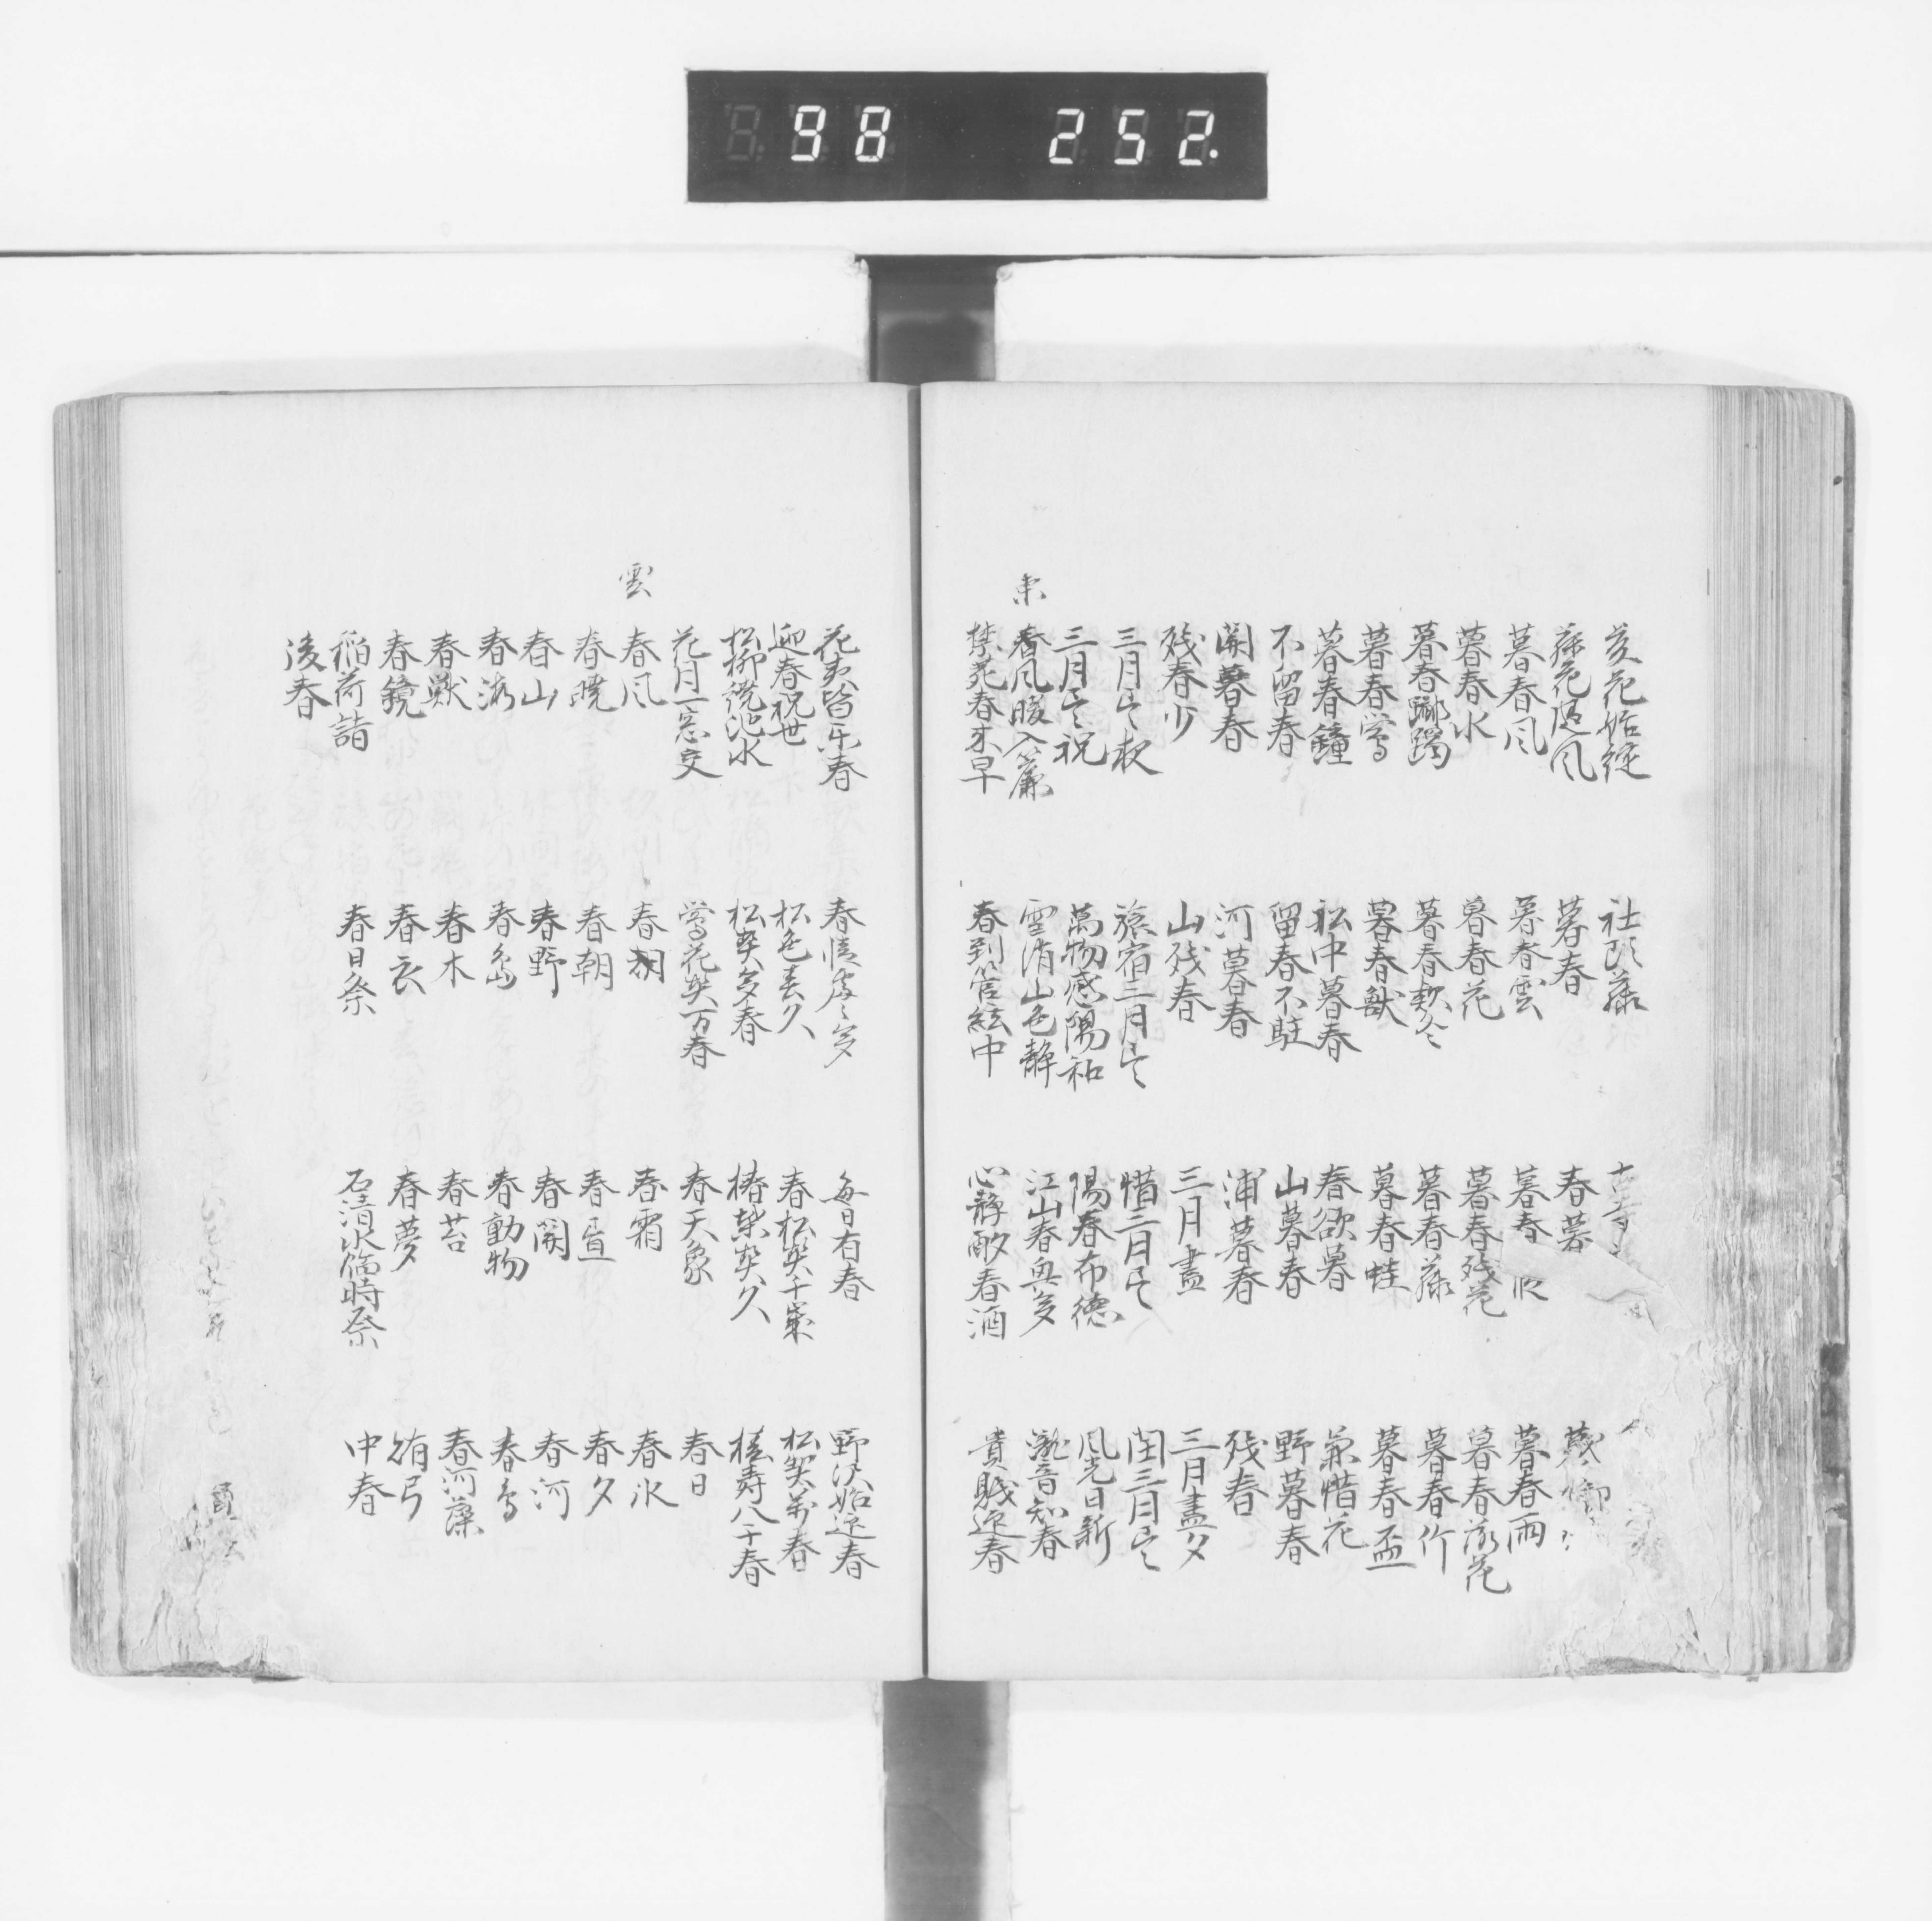 98 252.
藤花随風 暮春 春暮
暮春風 暮春雲 暮春 暮春雨
暮春水 暮春花 暮春残花 暮春落花
暮春躑躅 暮春款冬 暮春藤 暮春竹
暮春鶯 暮春獣 暮春蛙 暮春盃
暮春鐘 松中暮春 春欲暮 兼惜花
不留春 留春不駐 山暮春 野暮春
関暮春 河暮春 浦暮春 残春
残春少 山残春 三月盡 三月盡夕
三月尽夜 旅宿三月尽 惜三月尽 閏三月尽
三月尽祝 萬物感陽和 陽春布徳 風光日新
東
春風暖入簾 雪消山色静 江山春興多 瀧音知春
禁苑春来早 春到管絃中 心静酌春酒 貴賤迎春
花夷皆楽春 春情處々多 毎日有春 野沢始迎春
迎春祝世 松色春久 春松契千歳 松契万春
松柳繞池水 松契多春 椿葉契久 椿寿八千春
花月一窓交 鶯花契万春 春天象 春日
雲
春風 春朝 春霜 春氷
春暁 春朝 春昼 春夕
春山 春野 春関 春河
春海 春島 春動物 春鳥
春獣 春木 春苔 春河藻
春鏡 春衣 春夢 賭弓
稲荷詣 春日祭 石清水臨時祭 中春
後春